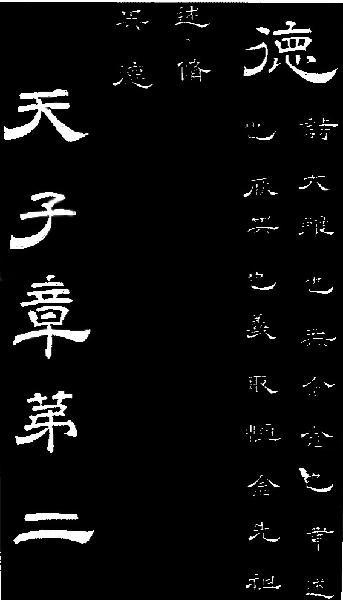 德
詩大雅也無念念也聿述
也厥其也義取恒念先祖
述脩
其德
天子章第二